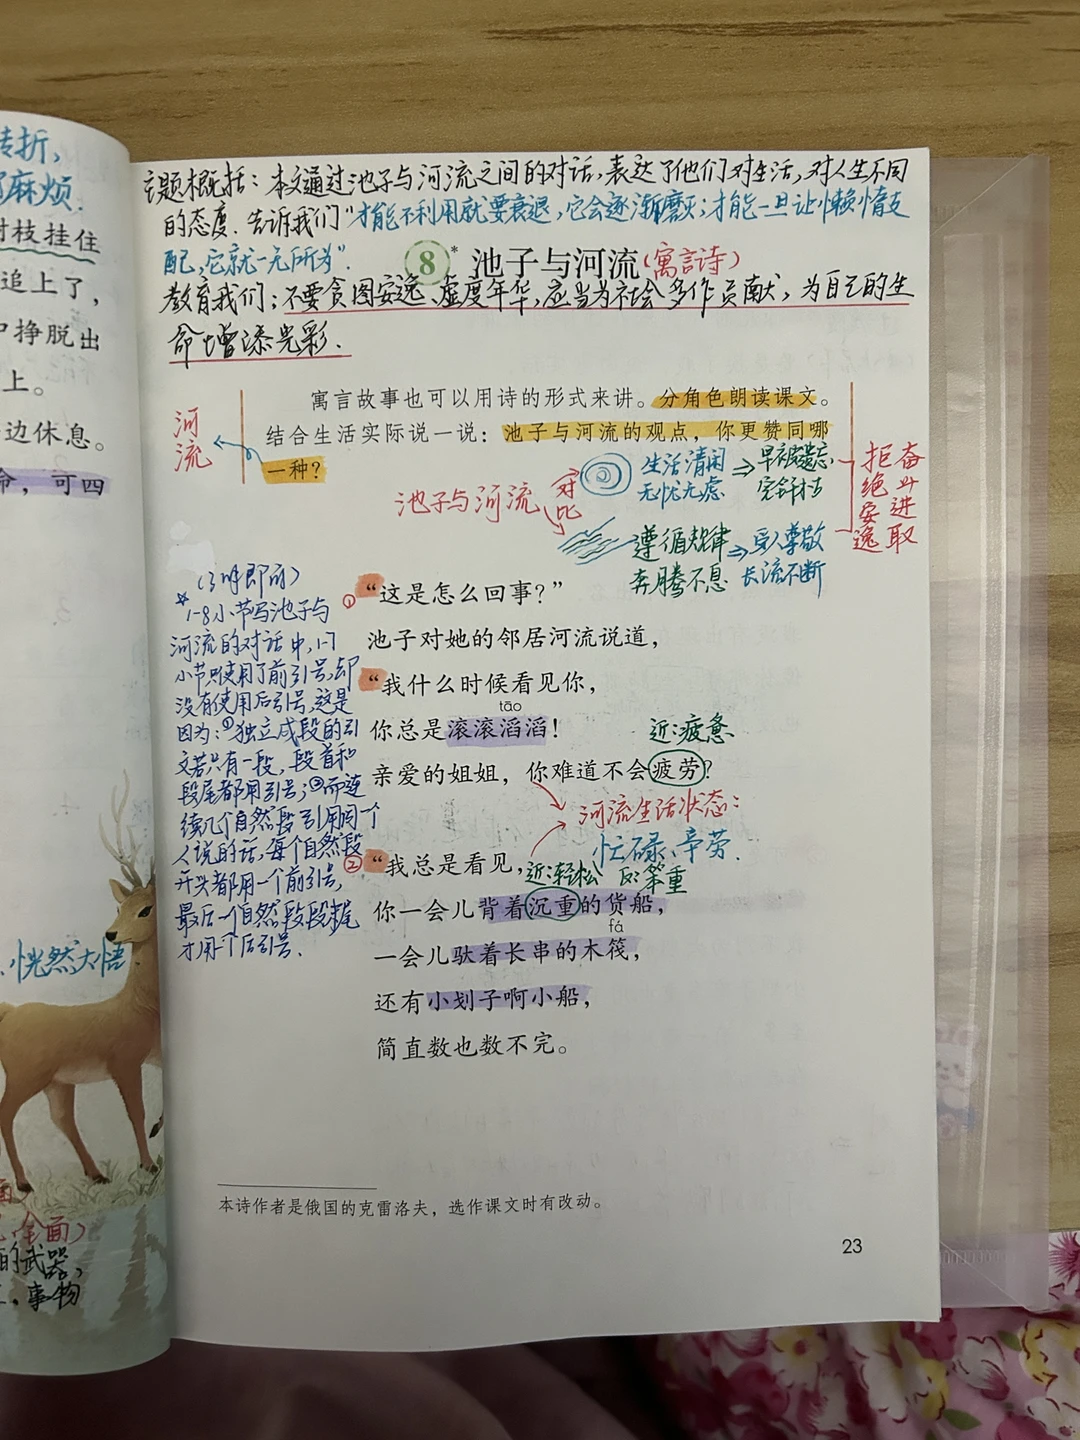 转折,
麻烦.
树枝挂住
追上了,
中挣脱出
上。
边休息。
命，可四
恍然大悟
全面)
的武器,
事物
主题概括：本文通过池子与河流之间的对话,表达了他们对生活,对人生不同
的态度.告诉我们"才能不利用就要衰退,它会逐渐磨灭;才能一旦让懒惰支
配,它就一无所为".
8* 池子与河流(寓言诗)
教育我们:不要贪图安逸、虚度年华,应当为社会多作贡献,为自己的生
命增添光彩.
寓言故事也可以用诗的形式来讲。分角色朗读课文。
结合生活实际说一说：池子与河流的观点，你更赞同哪
一种？
河流
池子与河流
对比
生活清闲
无忧无虑
⇒
早被遗忘
完全干枯
遵循规律
奔腾不息
⇒
受人尊敬
长流不断
拒绝安逸
奋斗进取
*1-8小节写池子与
河流的对话中,1-7
小节只使用了前引号,却
没有使用后引号,这是
因为:①独立成段的引
文若只有一段,段首和
段尾都用引号;②而连
续几个自然段引用同一个
人说的话,每个自然段
开头都用一个前引号,
最后一个自然段段尾
才用个后引号.
①“这是怎么回事？”
池子对她的邻居河流说道，
“我什么时候看见你，
tāo
你总是滚滚滔滔！
近:疲惫
亲爱的姐姐，你难道不会疲劳？
河流生活状态：
忙碌、辛劳.
②“我总是看见，
近:轻松 反:笨重
你一会儿背着沉重的货船，
fá
一会儿驮着长串的木筏，
还有小划子啊小船，
简直数也数不完。
本诗作者是俄国的克雷洛夫，选作课文时有改动。
23